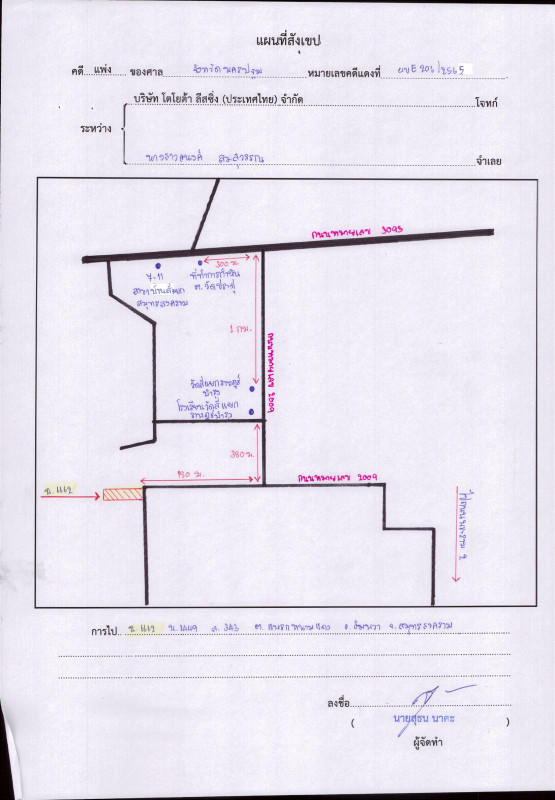 แผนที่สังเขป
คดี แพ่ง ของศาล จังหวัดนครปฐม หมายเลขคดีแดงที่ ผบE 206/2565
บริษัท โตโยต้า ลีสซิ่ง (ประเทศไทย) จำกัด โจทก์
ระหว่าง
จำเลย
ถนนหมายเลข 3093
300 ม.
7-11
สมุทรสงคราม
ที่ทำการกำนัน
1 กม.
ถนนหมายเลข 2009
วัดสี่แยกราษฎร์
บำรุง
โรงเรียนวัดสี่แยก
ราษฎร์บำรุง
380 ม.
130 ม.
ถนนหมายเลข 2009
ข. 1112
การไป ข. 1112 น. 1449 ส. 343 อ. อัมพวา จ. สมุทรสงคราม
ลงชื่อ
( นายสุธน นาคะ )
ผู้จัดทำ